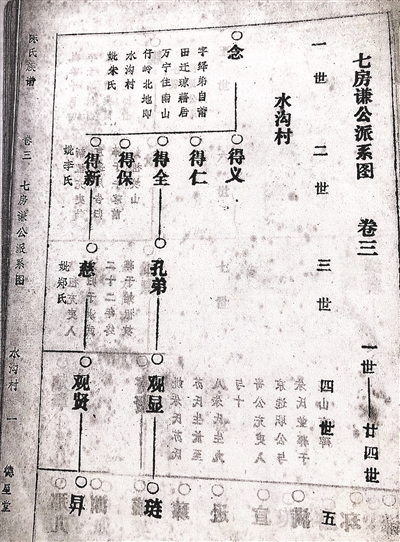 七房谦公派系图 卷三 一世——廿四世
一世 二世 三世 四世 五
水沟村
念
田迁琼籍后
万宁住南山
仔岭北地即
水沟村
妣朱氏
得义
得仁
得全
得保
得新
妣李氏
孔弟
慈
妣郑氏
观显
观贤
琏
昇
陈氏族谱 卷三 七房谦公派系图 水沟村 一 德星堂